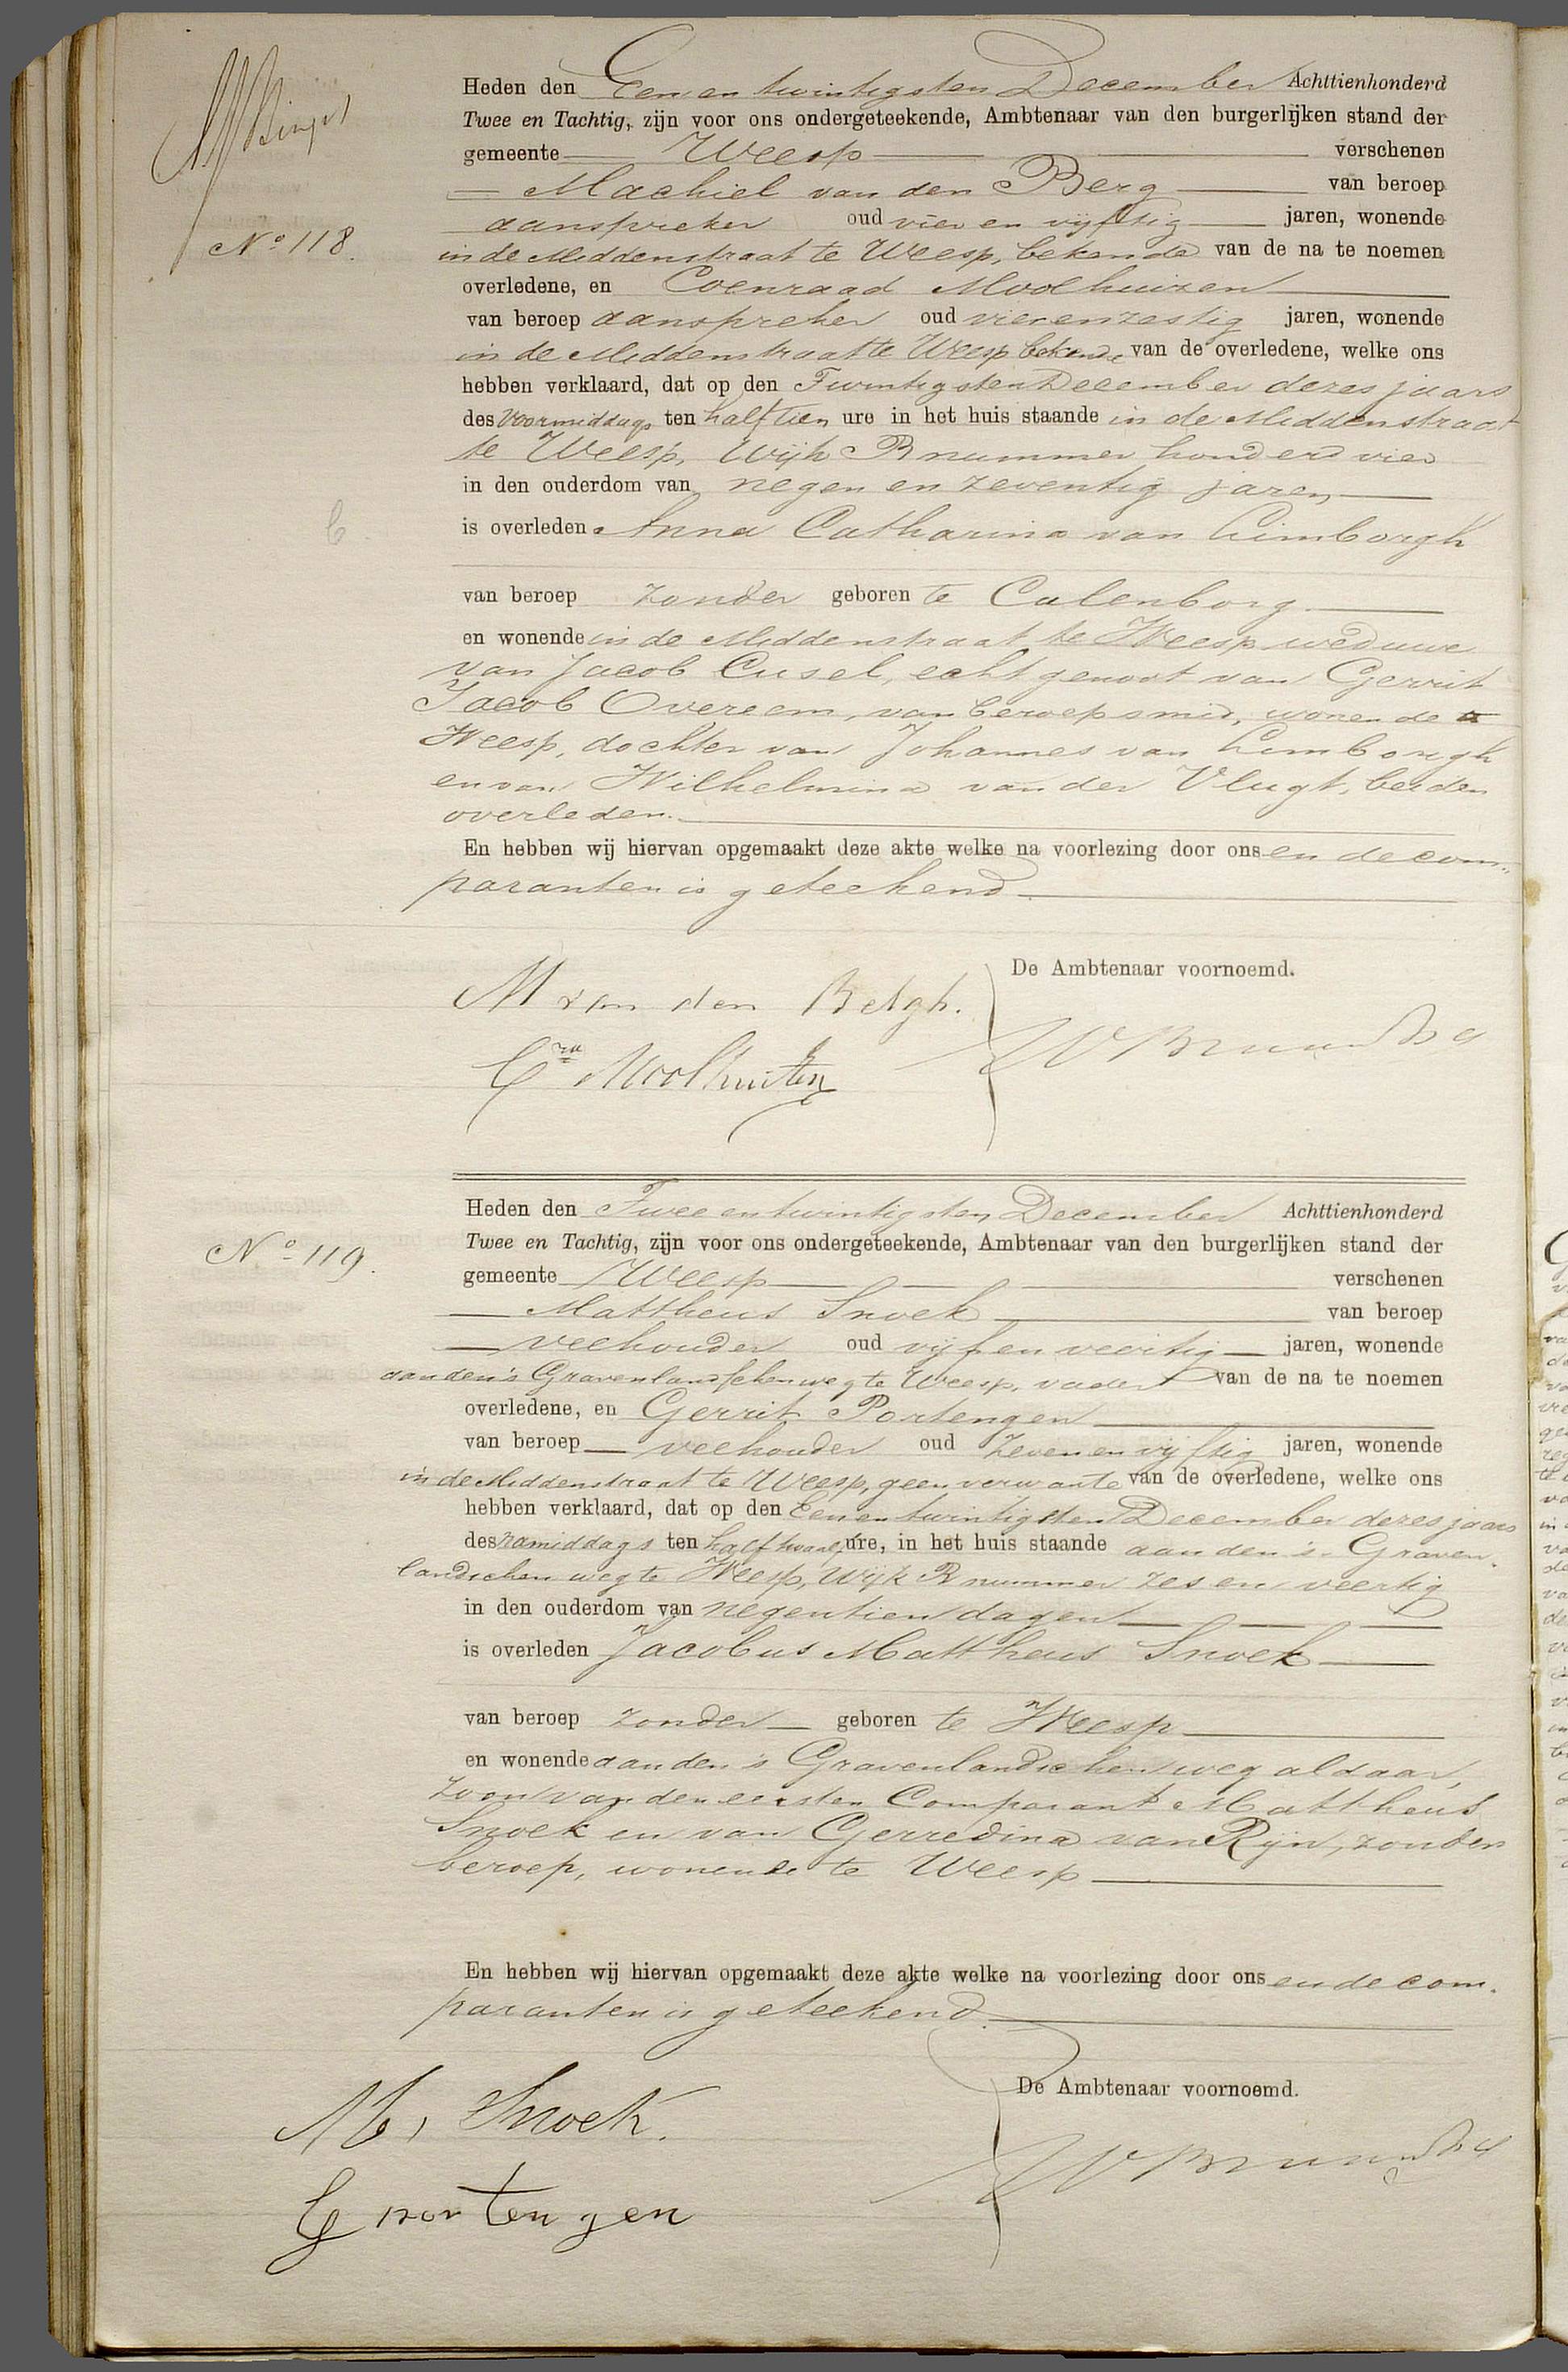 Heden den Een en twintigsten December Achttienhonderd
Twee en Tachtig, zijn voor ons ondergeteekende, Ambtenaar van den burgerlijken stand der
gemeente Weesp verschenen
Machiel van den Berg van beroep
aanspreker oud vier en vijftig jaren, wonende
No 118.
in de Middenstraat te Weesp, bekende van de na te noemen
overledene, en Coenraad Moolhuizen
van beroep aanspreker oud vierenzestig jaren, wonende
in de Middenstraat te Weesp bekende van de overledene, welke ons
hebben verklaard, dat op den Twintigsten December dezes jaars
des voormiddags ten half tien ure in het huis staande in de Middenstraat
te Weesp, Wijk B nummer honderd vier
in den ouderdom van negen en zeventig jaren
is overleden Anna Catharina van Limborgh
van beroep zonder geboren te Culenborg
en wonende in de Middenstraat te Weesp weduwe
van Jacob Cusel, echtgenoot van Gerrit
Jacob Overeem, van beroep smid, wonende te
Weesp, dochter van Johannes van Limborgh
en van Wilhelmina van der Vlugt, beiden
overleden.
En hebben wij hiervan opgemaakt deze akte welke na voorlezing door ons en de com-
paranten is geteekend
De Ambtenaar voornoemd.
M van den Bergh.
Cn Moolhuizen
Heden den Twee en twintigsten December Achttienhonderd
Twee en Tachtig, zijn voor ons ondergeteekende, Ambtenaar van den burgerlijken stand der
No 119.
gemeente Weesp verschenen
Mattheus Snoek van beroep
veehouder oud vijf en veertig jaren, wonende
aan den 's Gravenlandschen weg te Weesp, vader van de na te noemen
overledene, en Gerrit Portengen
van beroep veehouder oud zeven en vijftig jaren, wonende
in de Middenstraat te Weesp, geen verwante van de overledene, welke ons
hebben verklaard, dat op den Een en twintigsten December dezes jaars
des namiddags ten half twaalf ure, in het huis staande aan den 's Graven-
landschen weg te Weesp, Wijk B nummer zes en veertig
in den ouderdom van negentien dagen
is overleden Jacobus Mattheus Snoek
van beroep zonder geboren te Weesp
en wonende aan den 's Gravenlandschen weg aldaar,
zoon van den eersten Comparant Mattheus
Snoek en van Gerredina van Rijn, zonder
beroep, wonende te Weesp
En hebben wij hiervan opgemaakt deze akte welke na voorlezing door ons en de com-
paranten is geteekend
De Ambtenaar voornoemd.
M. Snoek.
G portengen